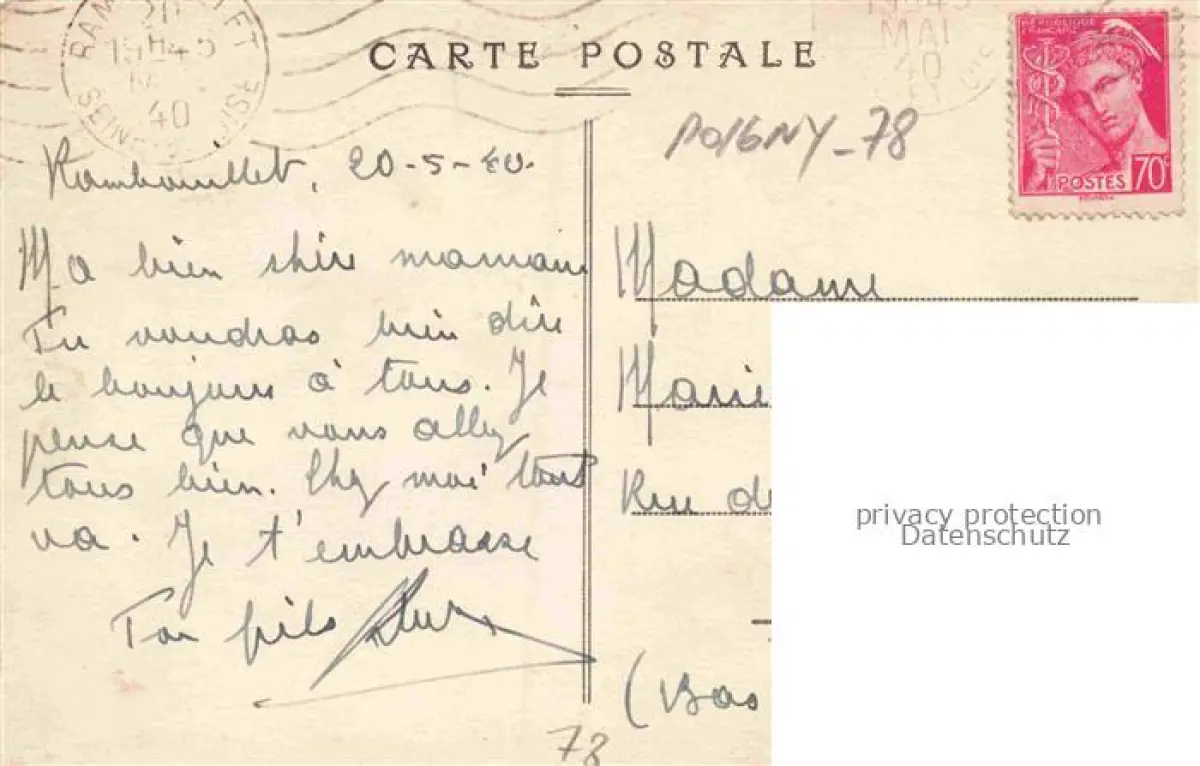 CARTE POSTALE
RAMBOUILLET
20
15H45
40
MAI
40
RÉPUBLIQUE
FRANÇAISE
POSTES 70c
POIGNY-78
Rambouillet, 20-5-40.
Ma bien chère maman
Tu voudras bien dire
le bonjour à tous. Je
pense que vous allez
tous bien. Chez moi tout
va. Je t'embrasse
Ton fils
Madame
Marie
Rue d
(Bas
78
privacy protection
Datenschutz